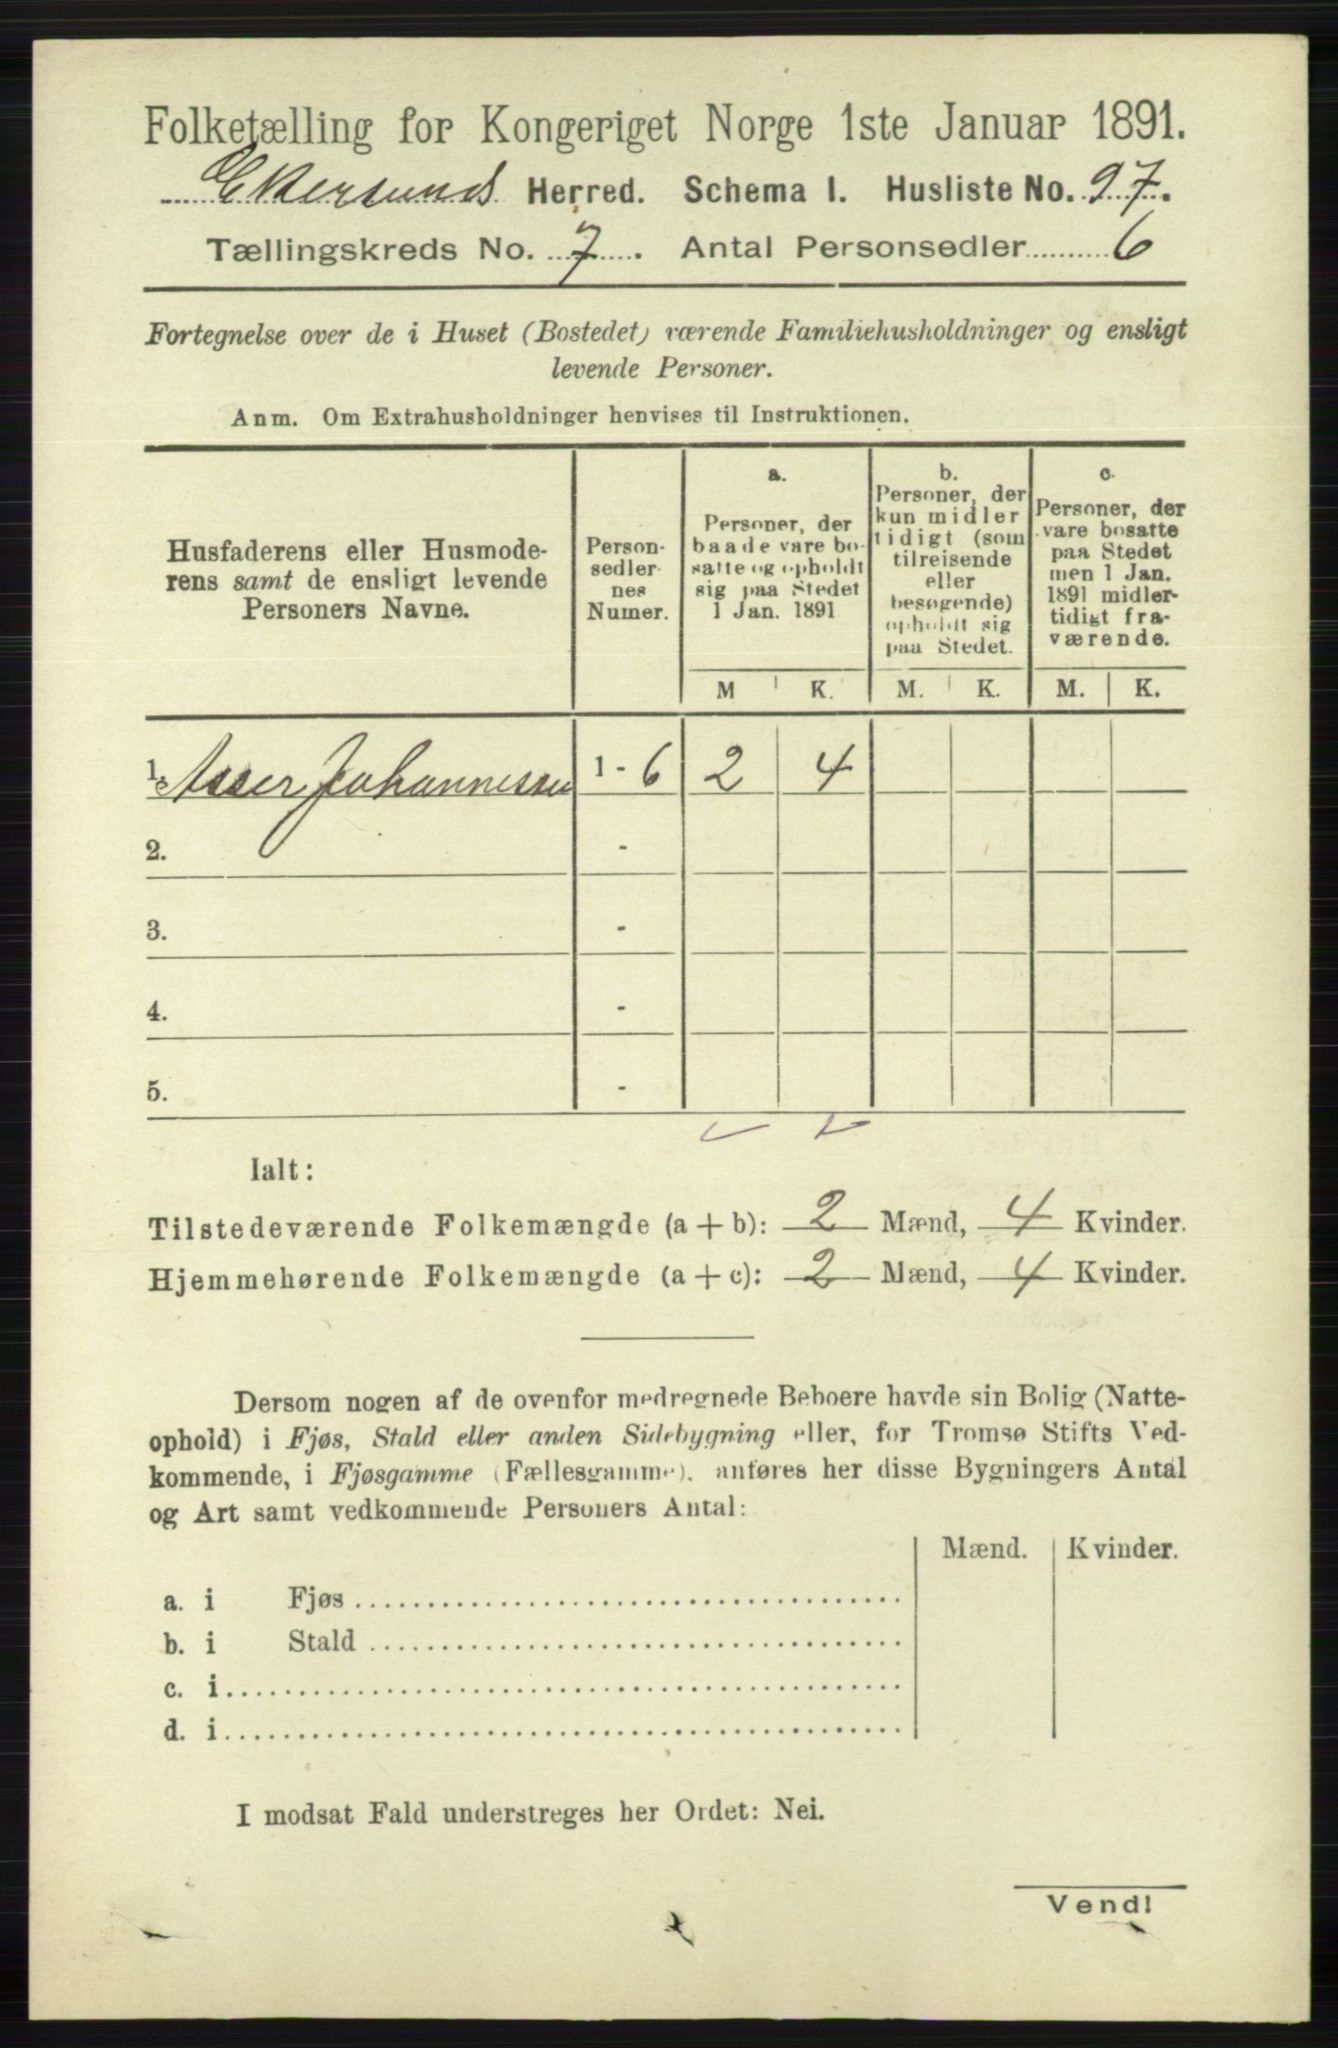 Folketælling for Kongeriget Norge 1ste Januar 1891.
Ekersunds Herred. Schema I. Husliste No. 97.
Tællingskreds No. 7. Antal Personsedler 6
Fortegnelse over de i Huset (Bostedet) værende Familiehusholdninger og ensligt
levende Personer.
Anm. Om Extrahusholdninger henvises til Instruktionen.
Husfaderens eller Husmode-
rens samt de ensligt levende
Personers Navne.
Person-
sedler-
nes
Numer.
a.
Personer, der
baade vare bo-
satte og opholdt
sig paa Stedet
1 Jan. 1891
b.
Personer, der
kun midler
tidigt (som
tilreisende
eller
besøgende)
opholdt sig
paa Stedet.
c.
Personer, der
vare bosatte
paa Stedet
men 1 Jan.
1891 midler-
tidigt fra-
værende.
M K. M. K. M. K.
1. Asser Johannessen 1 - 6 2 4
2. -
3. -
4. -
5. -
Ialt:
Tilstedeværende Folkemængde (a + b): 2 Mænd, 4 Kvinder.
Hjemmehørende Folkemængde (a + c): 2 Mænd, 4 Kvinder.
Dersom nogen af de ovenfor medregnede Beboere havde sin Bolig (Natte-
ophold) i Fjøs, Stald eller anden Sidebygning eller, for Tromsø Stifts Ved-
kommende, i Fjøsgamme (Fællesgamme), anføres her disse Bygningers Antal
og Art samt vedkommende Personers Antal:
Mænd. Kvinder.
a. i Fjøs
b. i Stald
c. i
d. i
I modsat Fald understreges her Ordet: Nei.
Vend!